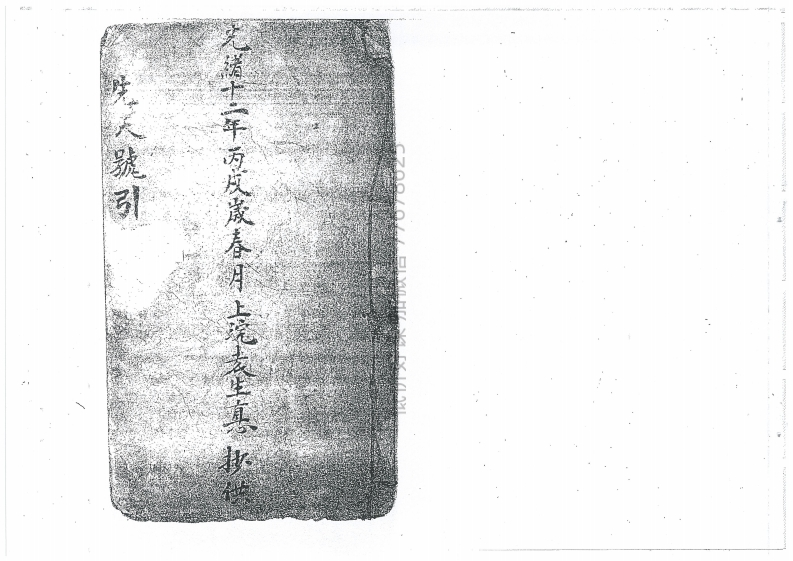 光緒十二年丙戌歲春月上浣袁生惪抄供
先天號引